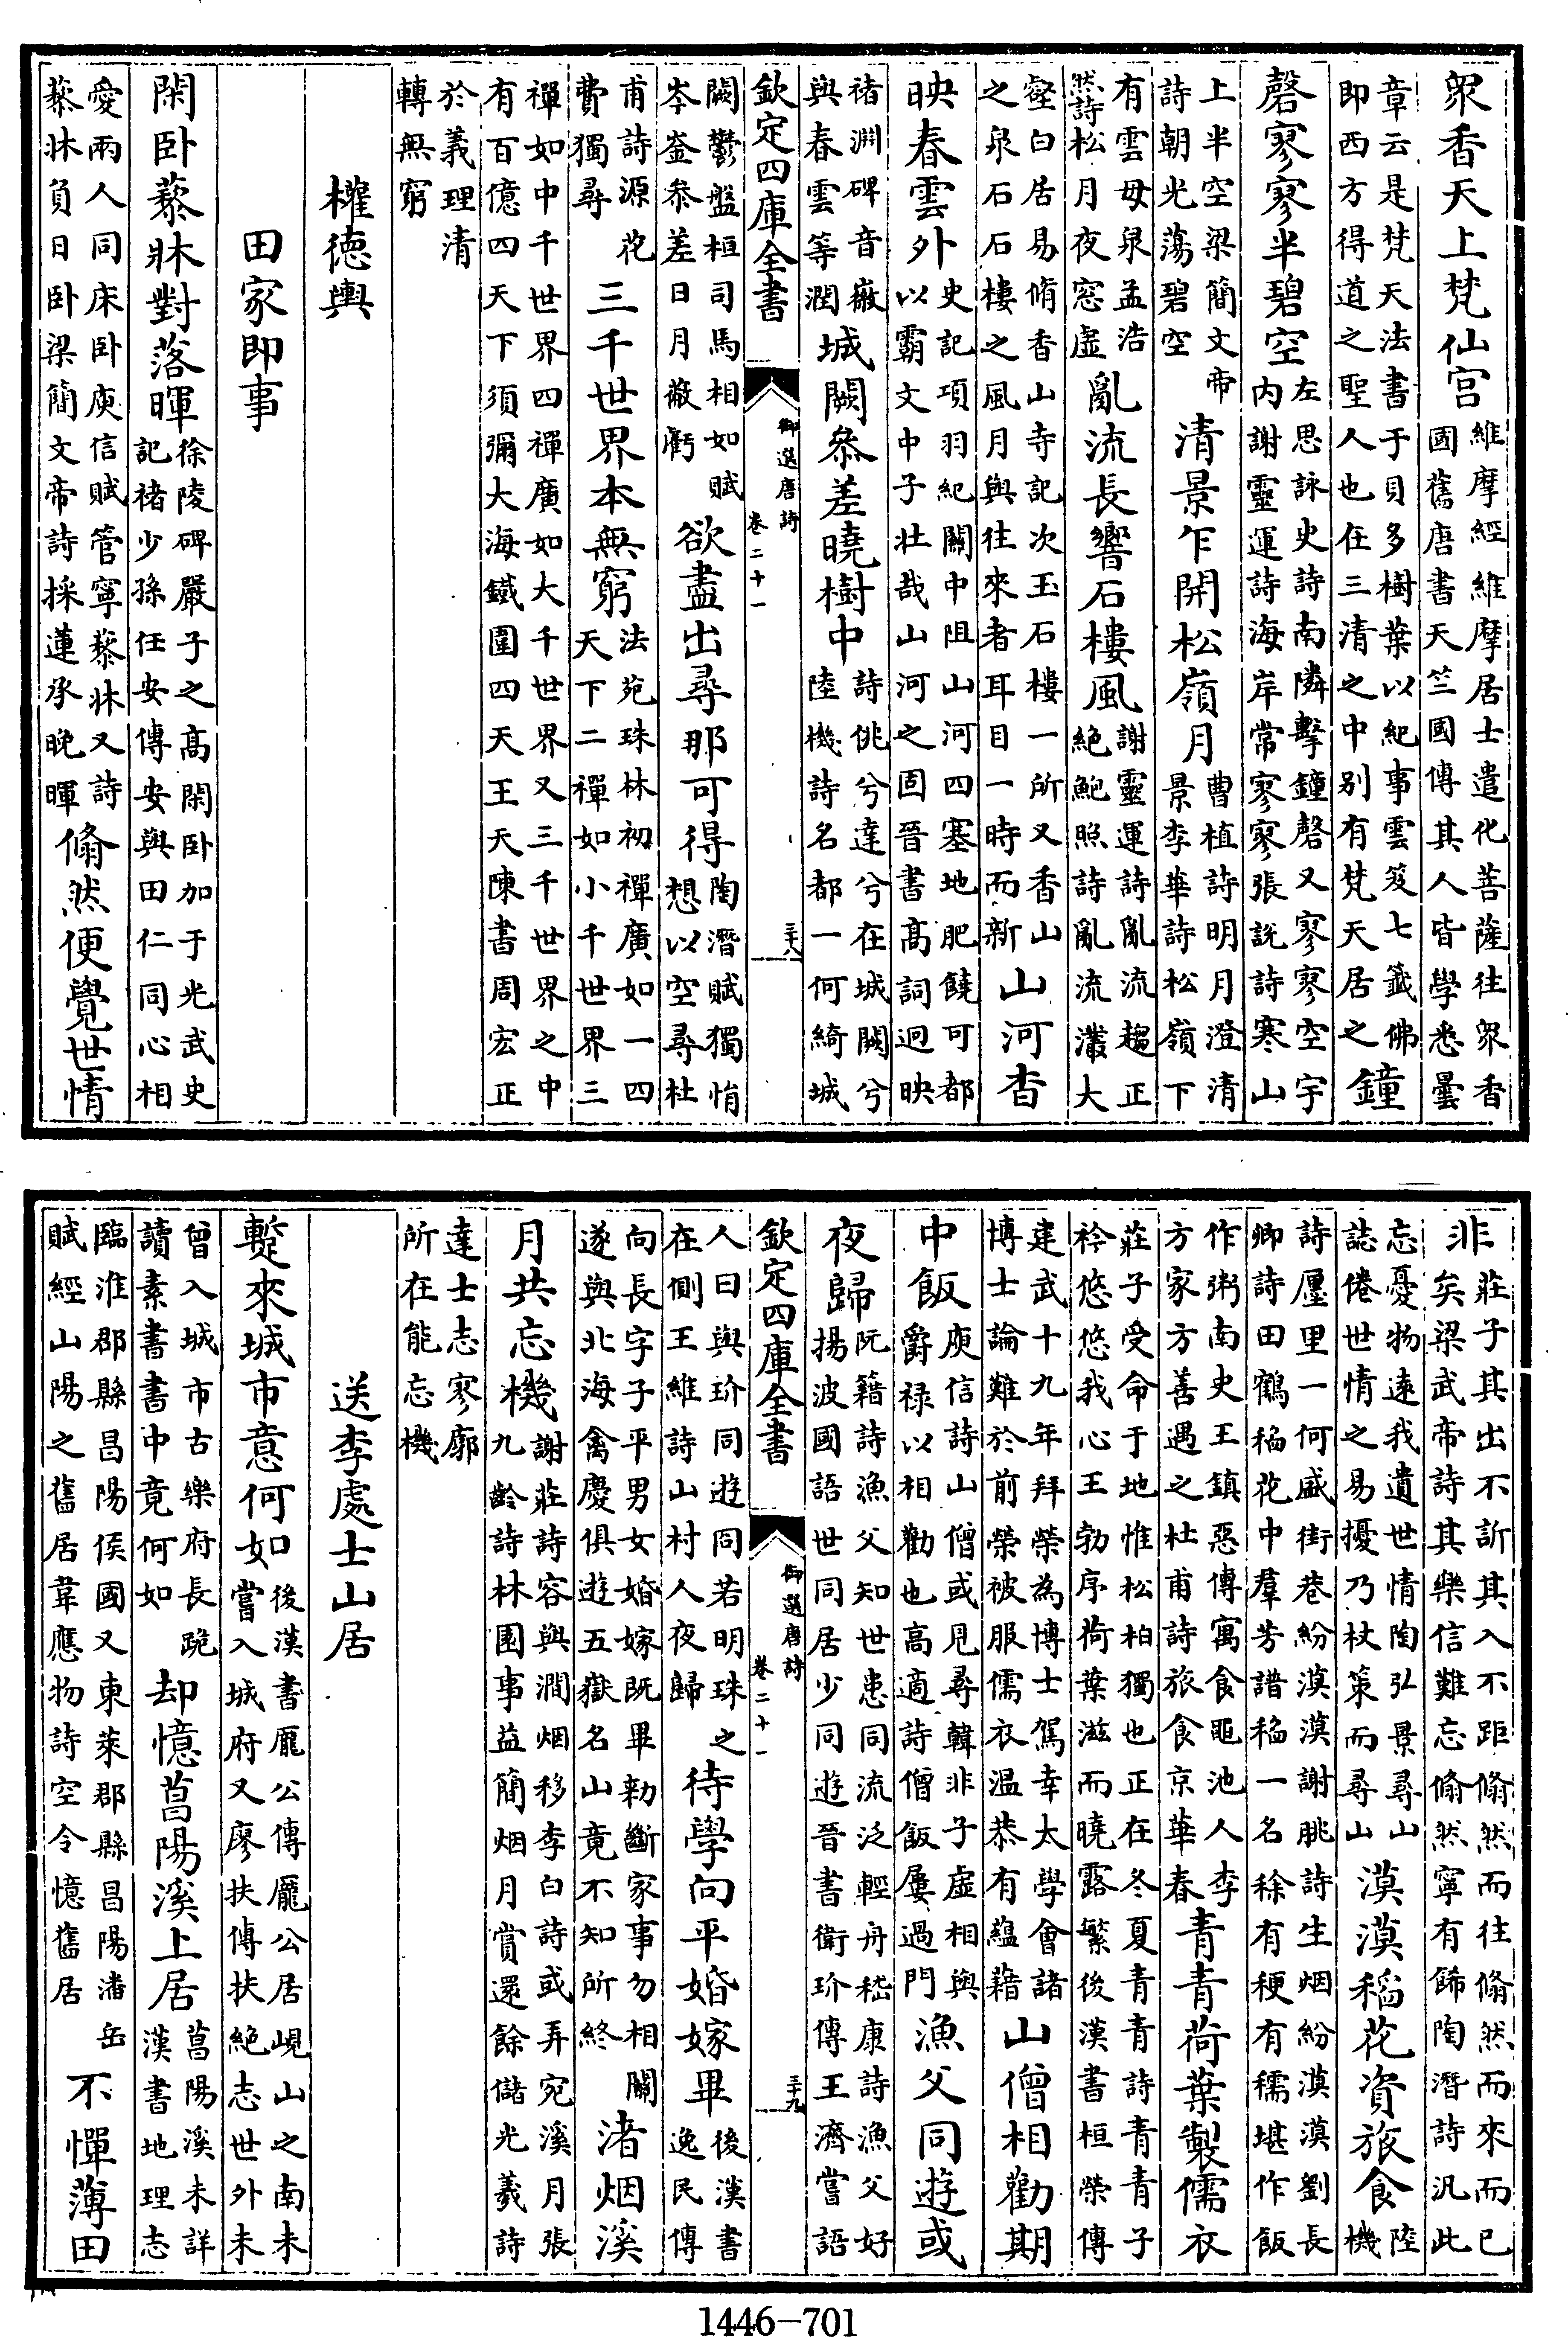 衆香天上梵仙宫維摩經維摩居士遣化菩薩往衆香國舊唐書天竺國傳其人皆學悉曇
章云是梵天法書于貝多樹葉以紀事雲笈七籤佛即西方得道之聖人也在三清之中别有梵天居之鐘
磬寥寥半碧空左思詠史詩南隣擊鐘磬又寥寥空宇内謝靈運詩海岸常寥寥張説詩寒山
上半空梁簡文帝詩朝光蕩碧空清景乍開松嶺月曹植詩明月澄清景李華詩松嶺下
有雲母泉孟浩然詩松月夜窓虛亂流長響石樓風謝靈運詩亂流趨正絶鮑照詩亂流灇大
壑白居易脩香山寺記次玉石樓一所又香山之泉石石樓之風月與往來者耳目一時而新山河杳
映春雲外史記項羽紀關中阻山河四塞地肥饒可都以霸文中子壯哉山河之固晉書髙詞迥映
褚淵碑音徽與春雲等潤城闕參差曉樹中詩佻兮達兮在城闕兮陸機詩名都一何綺城
欽定四庫全書 御選唐詩 卷二十一 三十八
闕鬱盤桓司馬相如賦岑崟參差日月蔽虧欲盡出尋那可得陶潛賦獨悁想以空尋杜
甫詩源花費獨尋三千世界本無窮法苑珠林初禪廣如一四天下二禪如小千世界三
禪如中千世界四禪廣如大千世界又三千世界之中有百億四天下須彌大海鐵圍四天王天陳書周宏正
於義理清轉無窮
權德輿
田家即事
閑卧藜牀對落暉徐陵碑嚴子之髙閑卧加于光武史記褚少孫任安傳安與田仁同心相
愛兩人同床卧庾信賦管寧藜牀又詩藜牀負日卧梁簡文帝詩採蓮承晚暉翛然便覺世情
非莊子其出不訢其入不距翛然而往翛然而來而已矣梁武帝詩其樂信難忘翛然寧有飾陶潛詩汎此
忘憂物遠我遺世情陶弘景尋山誌倦世情之易擾乃杖策而尋山漠漠稻花資旅食陸機
詩廛里一何盛街巷紛漠漠謝朓詩生烟紛漠漠劉長卿詩田鶴稻花中羣芳譜稻一名稌有稉有稬堪作飯
作粥南史王鎮惡傳寓食黽池人李方家方善遇之杜甫詩旅食京華春青青荷葉製儒衣
莊子受命于地惟松柏獨也正在冬夏青青詩青青子衿悠悠我心王勃序荷葉滋而曉露繁後漢書桓榮傳
建武十九年拜榮為博士駕幸太學會諸博士論難於前榮被服儒衣温恭有蘊藉山僧相勸期
中飯庾信詩山僧或見尋韓非子虛相與爵禄以相勸也高適詩僧飯屢過門漁父同遊或
夜歸阮籍詩漁父知世患同流泛輕舟嵇康詩漁父好揚波國語世同居少同遊晉書衛玠傳王濟嘗語
欽定四庫全書 御選唐詩 卷二十一 三十九
人曰與玠同遊同若明珠之在側王維詩山村人夜歸待學向平婚嫁畢後漢書逸民傳
向長字子平男女婚嫁既畢勑斷家事勿相關遂與北海禽慶俱遊五嶽名山竟不知所終渚烟溪
月共忘機謝莊詩容與澗烟移李白詩或弄宛溪月張九齡詩林園事益簡烟月賞還餘儲光羲詩
達士志寥廓所在能忘機
送李處士山居
蹔來城市意何如後漢書龐公傳龐公居峴山之南未嘗入城府又廖扶傳扶絶志世外未
曾入城市古樂府長跪讀素書書中竟何如却憶菖陽溪上居菖陽溪未詳漢書地理志
臨淮郡縣昌陽侯國又東萊郡縣昌陽潘岳賦經山陽之舊居韋應物詩空令憶舊居不憚薄田
1446-701